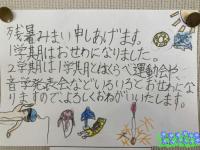 残暑みまい申しあげます。
1学期はおせわになりました。
2学期は1学期とはくらべ運動会や、
音学発表会などいろいろとおせわにな
りますのでよろしくおねがいいたします。